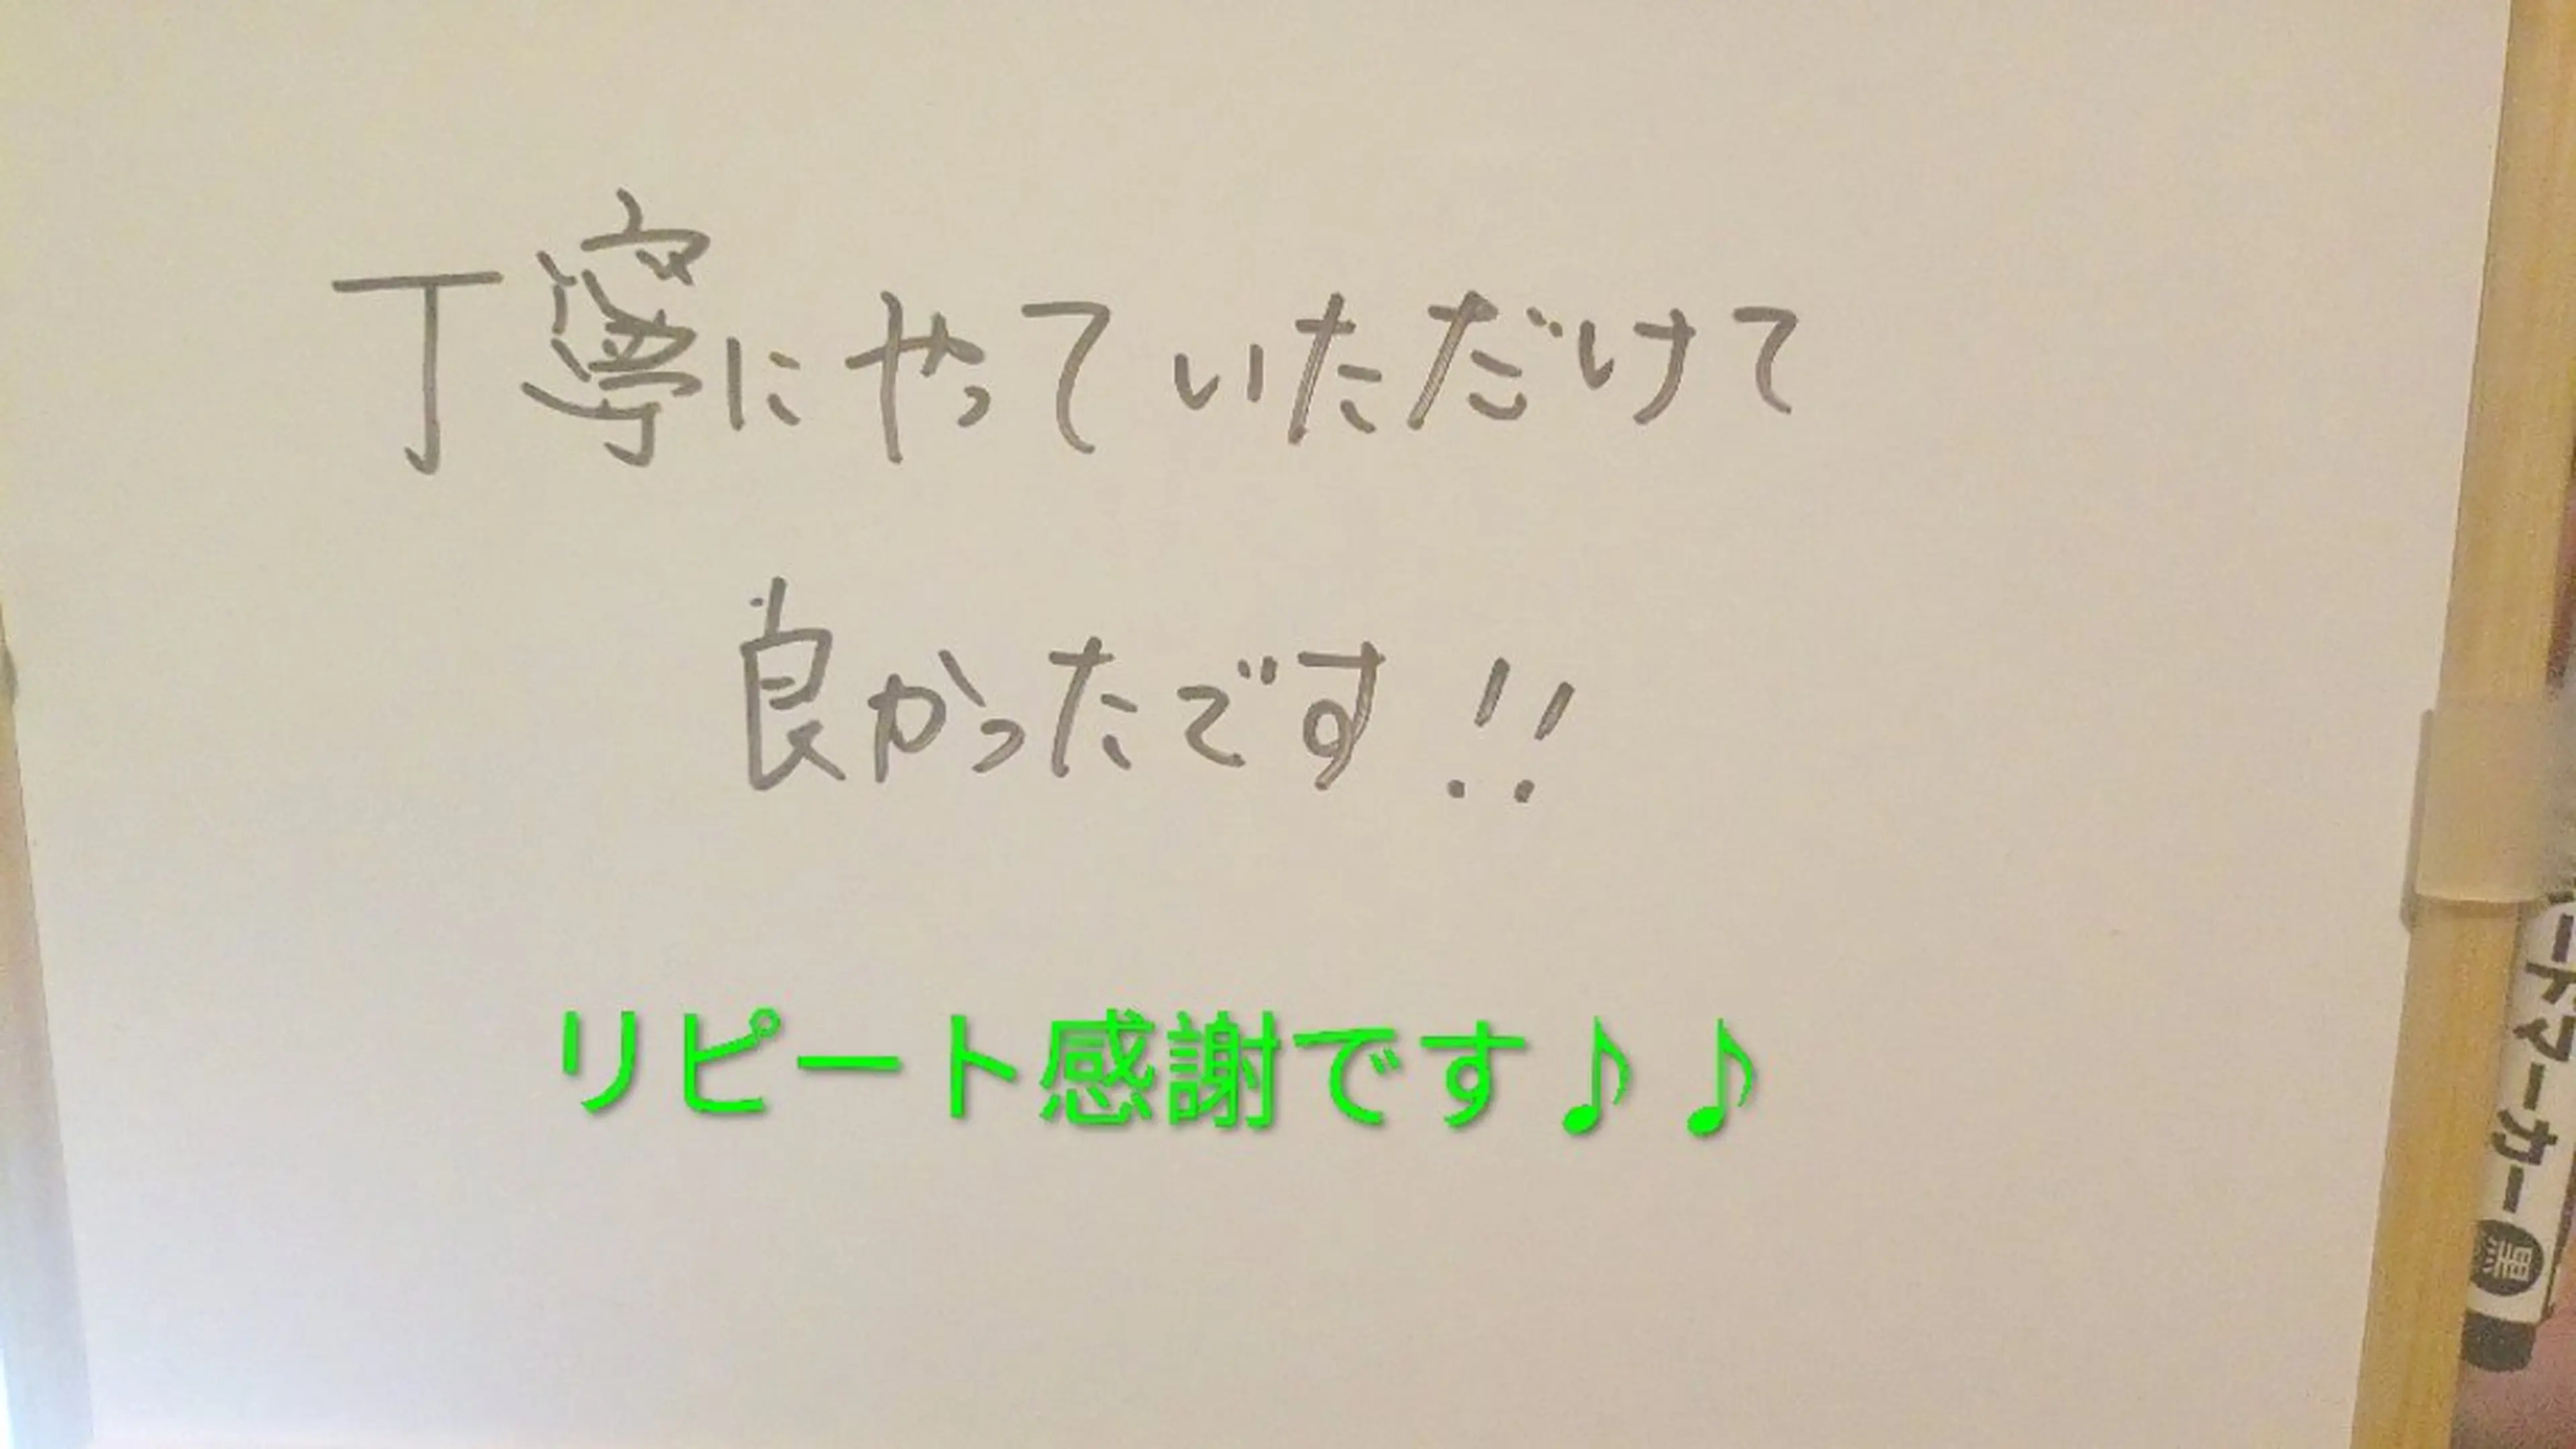 丁寧にやっていただけて
良かったです!!
リピート感謝です♪♪
ードマーカー黒